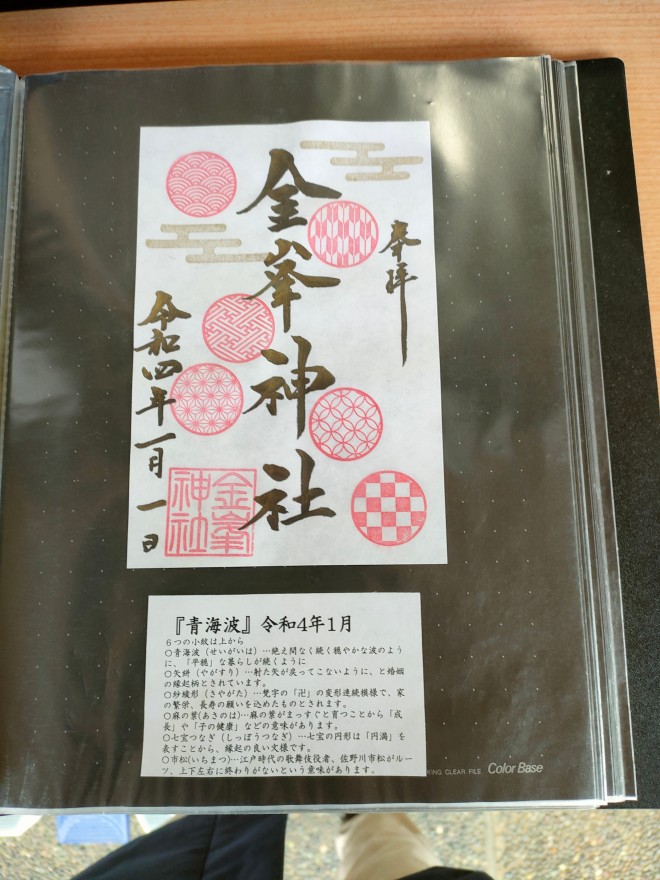 奉拝
金峯神社
令和四年一月一日
金峯
神社
『青海波』令和4年1月
６つの小紋は上から
○青海波（せいがいは）…絶え間なく続く穏やかな波のよう
に、「平穏」な暮らしが続くように
○矢絣（やがすり）…射た矢が戻ってこないように、と婚姻
の縁起柄とされています。
○紗綾形（さやがた）…梵字の「卍」の変形連続模様で、家
の繁栄、長寿の願いを込めたものとされます。
○麻の葉(あさのは)…麻の葉がまっすぐと育つことから「成
長」や「子の健康」などの意味があります。
○七宝つなぎ（しっぽうつなぎ）…七宝の円形は「円満」を
表すことから、縁起の良い文様です。
○市松(いちまつ)…江戸時代の歌舞伎役者、佐野川市松がルー
ツ、上下左右に終わりがないという意味があります。
KING CLEAR FILE Color Base